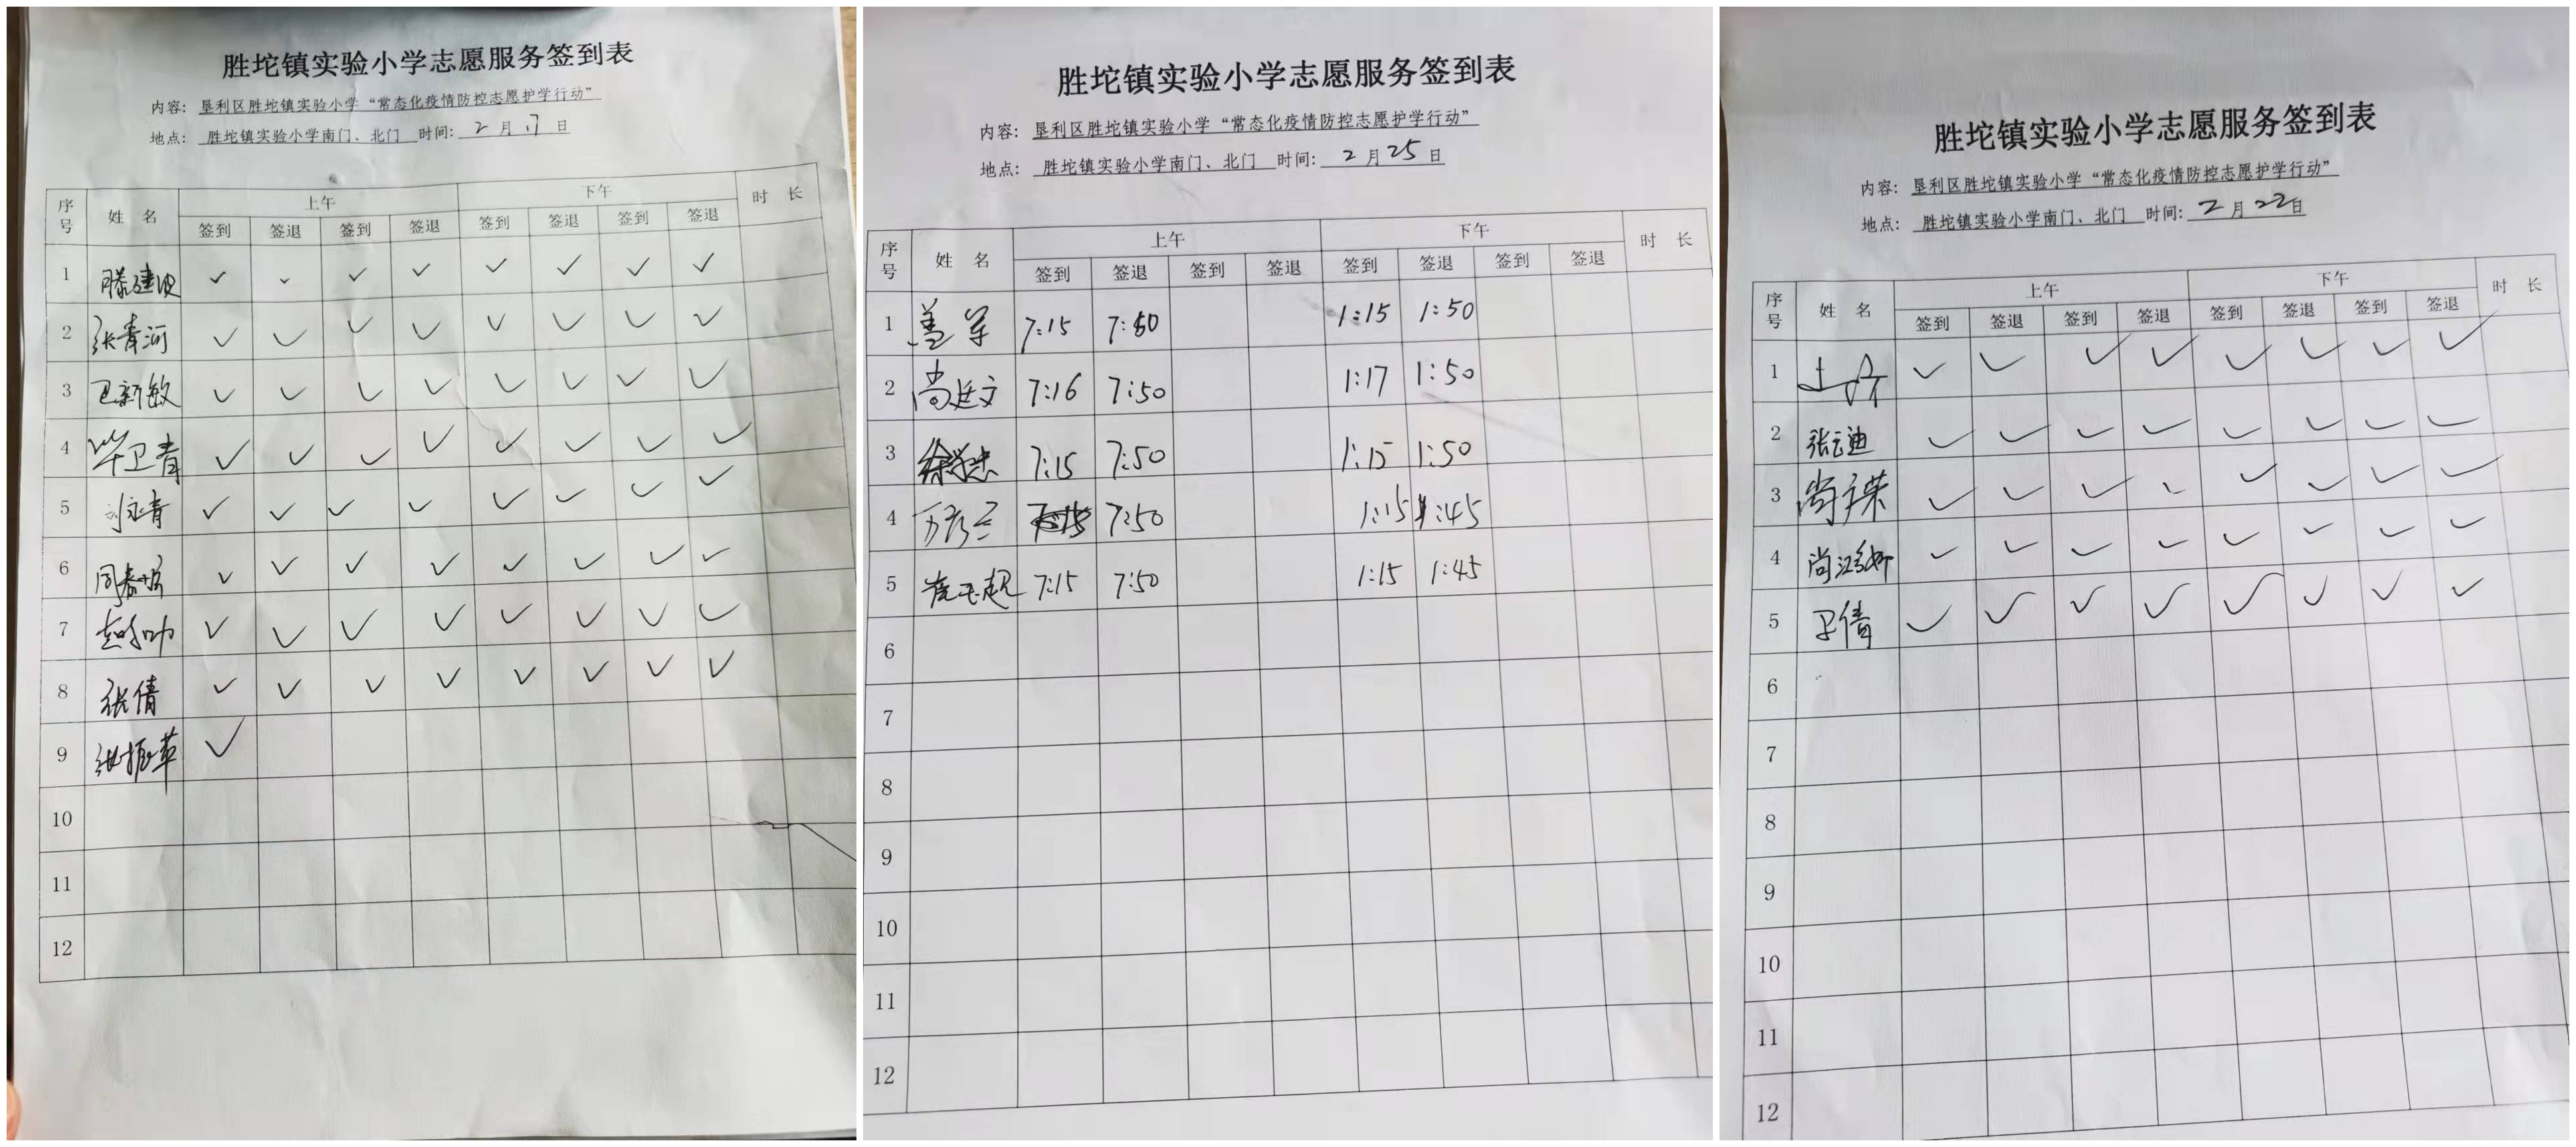 胜坨镇实验小学志愿服务签到表
内容：垦利区胜坨镇实验小学“常态化疫情防控志愿护学行动”
地点：胜坨镇实验小学南门、北门 时间：2月17日
序号 姓名 上午 下午 时长
签到 签退 签到 签退 签到 签退 签到 签退
1 滕建波 ✓ ✓ ✓ ✓ ✓ ✓ ✓ ✓
2 张青河 ✓ ✓ ✓ ✓ ✓ ✓ ✓ ✓
3 卫新敏 ✓ ✓ ✓ ✓ ✓ ✓ ✓ ✓
4 毕卫青 ✓ ✓ ✓ ✓ ✓ ✓ ✓ ✓
5 刘永青 ✓ ✓ ✓ ✓ ✓ ✓ ✓ ✓
6 ✓ ✓ ✓ ✓ ✓ ✓ ✓ ✓
7 ✓ ✓ ✓ ✓ ✓ ✓ ✓ ✓
8 张倩 ✓ ✓ ✓ ✓ ✓ ✓ ✓ ✓
9 张振革 ✓
10
11
12
胜坨镇实验小学志愿服务签到表
内容：垦利区胜坨镇实验小学“常态化疫情防控志愿护学行动”
地点：胜坨镇实验小学南门、北门 时间：2月25日
序号 姓名 上午 下午 时长
签到 签退 签到 签退 签到 签退 签到 签退
1 盖军 7:15 7:50 1:15 1:50
2 尚廷文 7:16 7:50 1:17 1:50
3 7:15 7:50 1:15 1:50
4 7:15 7:50 1:15 1:45
5 崔玉超 7:15 7:50 1:15 1:45
6
7
8
9
10
11
12
胜坨镇实验小学志愿服务签到表
内容：垦利区胜坨镇实验小学“常态化疫情防控志愿护学行动”
地点：胜坨镇实验小学南门、北门 时间：2月22日
序号 姓名 上午 下午 时长
签到 签退 签到 签退 签到 签退 签到 签退
1 ✓ ✓ ✓ ✓ ✓ ✓ ✓ ✓
2 张云迪 ✓ ✓ ✓ ✓ ✓ ✓ ✓ ✓
3 ✓ ✓ ✓ ✓ ✓ ✓ ✓ ✓
4 ✓ ✓ ✓ ✓ ✓ ✓ ✓ ✓
5 卫倩 ✓ ✓ ✓ ✓ ✓ ✓ ✓ ✓
6
7
8
9
10
11
12